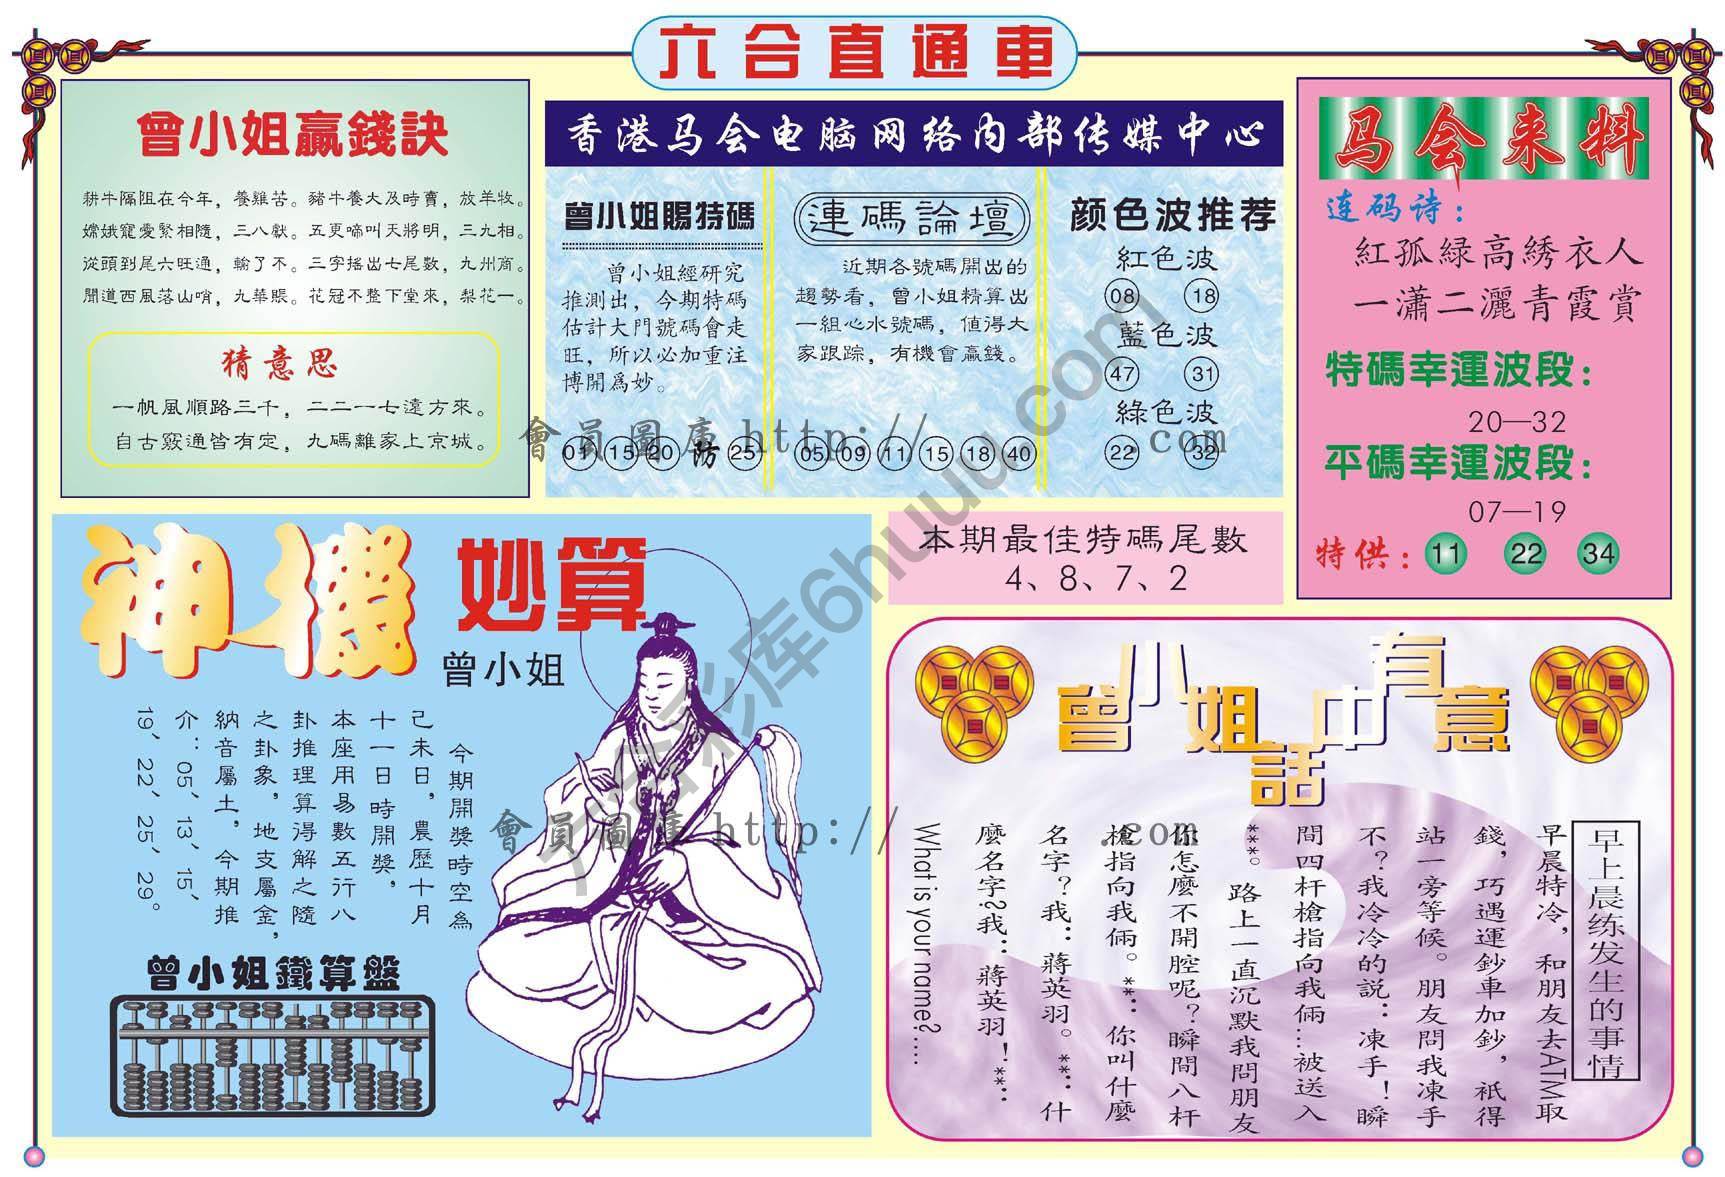 六合直通車
曾小姐贏錢訣
耕牛隔阻在今年，養雞苦。豬牛養大及時賣，放羊牧。
嫦娥寵愛緊相隨，三八獻。五更啼叫天將明，三九相。
從頭到尾六旺通，輸了不。三字搖出七尾數，九州商。
開道西風落山哨，九華賬。花冠不整下堂來，梨花一。
猜意思
一帆風順路三千，二二一七遠方來。
自古竅通皆有定，九碼離家上京城。
香港马会电脑网络内部传媒中心
曾小姐賜特碼
曾小姐經研究
推測出，今期特碼
估計大門號碼會走
旺，所以必加重注
博開爲妙。
01 15 20 防 25
連碼論壇
近期各號碼開出的
趨勢看，曾小姐精算出
一組心水號碼，值得大
家跟踪，有機會贏錢。
05 09 11 15 18 40
颜色波推荐
紅色波
08 18
藍色波
47 31
綠色波
22 32
马会来料
连码诗：
紅孤緑高綉衣人
一瀟二灑青霞賞
特碼幸運波段：
20—32
平碼幸運波段：
07—19
特供：11 22 34
本期最佳特碼尾數
4、8、7、2
神機妙算
曾小姐
今期開獎時空為
己未日，農歷十月
十一日時開獎，
本座用易數五行八
卦推理算得解之隨
之卦象，地支屬金，
納音屬土，今期推
介：05、13、15、
19、22、25、29。
曾小姐鐵算盤
曾小姐話中有意
早上晨练发生的事情
早晨特冷，和朋友去ATM取
錢，巧遇運鈔車加鈔，祇得
站一旁等候。朋友問我凍手
不？我冷冷的説：凍手！瞬
間四杆槍指向我倆…被送入
***。路上一直沉默我問朋友
你怎麼不開腔呢？瞬間八杆
槍指向我倆。**：你叫什麼
名字？我：蔣英羽。**：什
麼名字?我：蔣英羽！**：
What is your name?....
會員圖庫 http:// .com
會員圖庫 http:// .com
六合彩库6huuu.com